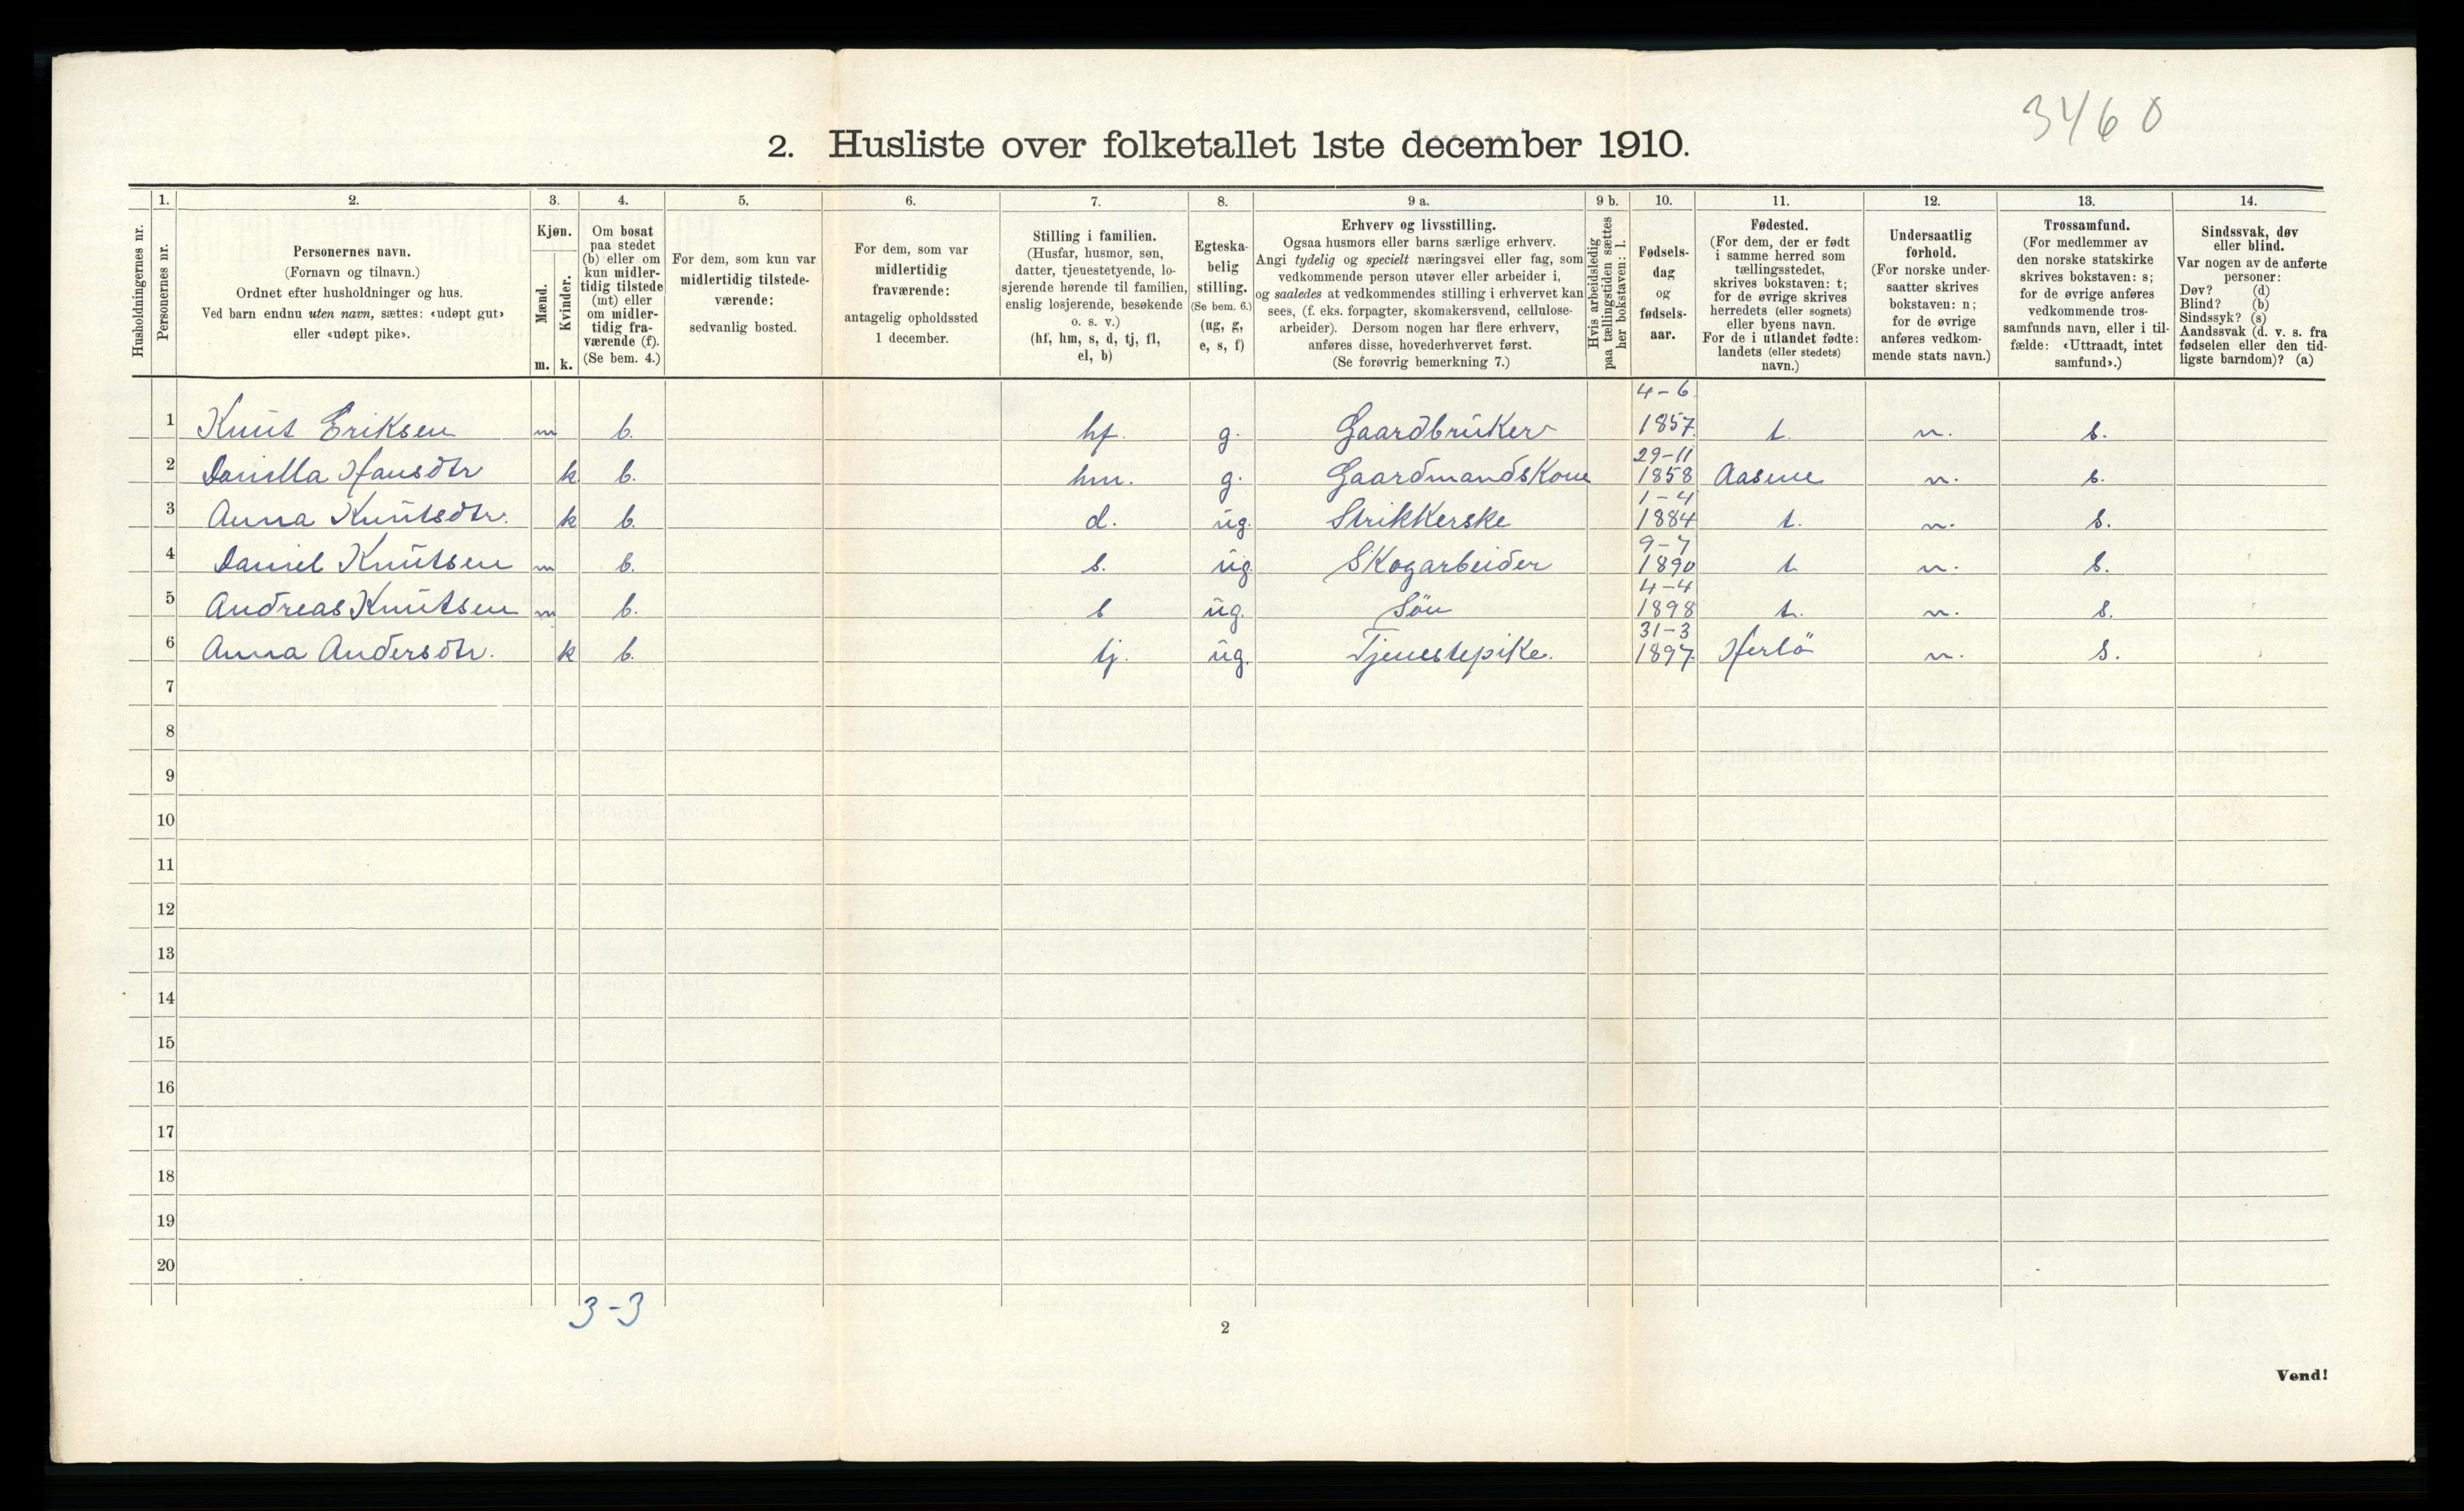 3460
2. Husliste over folketallet 1ste december 1910.
Husholdningernes nr.
1. Personernes nr.
2. Personernes navn.
(Fornavn og tilnavn.)
Ordnet efter husholdninger og hus.
Ved barn endnu uten navn, sættes: «udøpt gut»
eller «udøpt pike».
3. Kjøn.
Mænd. m.
Kvinder. k.
4. Om bosat
paa stedet
(b) eller om
kun midler-
tidig tilstede
(mt) eller
om midler-
tidig fra-
værende (f).
(Se bem. 4.)
5. For dem, som kun var
midlertidig tilstede-
værende:
sedvanlig bosted.
6. For dem, som var
midlertidig
fraværende:
antagelig opholdssted
1 december.
7. Stilling i familien.
(Husfar, husmor, søn,
datter, tjenestetyende, lo-
sjerende hørende til familien,
enslig losjerende, besøkende
o. s. v.)
(hf, hm, s, d, tj, fl,
el, b)
8. Egteska-
belig
stilling.
(Se bem. 6.)
(ug, g,
e, s, f)
9 a. Erhverv og livsstilling.
Ogsaa husmors eller barns særlige erhverv.
Angi tydelig og specielt næringsvei eller fag, som
vedkommende person utøver eller arbeider i,
og saaledes at vedkommendes stilling i erhvervet kan
sees, (f. eks. forpagter, skomakersvend, cellulose-
arbeider). Dersom nogen har flere erhverv,
anføres disse, hovederhvervet først.
(Se forøvrig bemerkning 7.)
9 b. Hvis arbeidsledig
paa tællingstiden sættes
her bokstaven: l.
10. Fødsels-
dag
og
fødsels-
aar.
11. Fødested.
(For dem, der er født
i samme herred som
tællingsstedet,
skrives bokstaven: t;
for de øvrige skrives
herredets (eller sognets)
eller byens navn.
For de i utlandet fødte:
landets (eller stedets)
navn.)
12. Undersaatlig
forhold.
(For norske under-
saatter skrives
bokstaven: n;
for de øvrige
anføres vedkom-
mende stats navn.)
13. Trossamfund.
(For medlemmer av
den norske statskirke
skrives bokstaven: s;
for de øvrige anføres
vedkommende tros-
samfunds navn, eller i til-
fælde: «Uttraadt, intet
samfund».)
14. Sindssvak, døv
eller blind.
Var nogen av de anførte
personer:
Døv? (d)
Blind? (b)
Sindssyk? (s)
Aandssvak (d. v. s. fra
fødselen eller den tid-
ligste barndom)? (a)
1 Knut Eriksen m b. hf. g. Gaardbruker 4-6 1857 t. n. s.
2 Danilla Hansdtr k b. hm. g. Gaardmandskone 29-11 1858 Aasene n. s.
3 Anna Knutsdtr. k b. d. ug. Strikkerske 1-4 1884 t. n. s.
4 Daniel Knutsen m b. s. ug. Skogarbeider 9-7 1890 t. n. s.
5 Andreas Knutsen m b. s ug. Sön 4-4 1898 t. n. s.
6 Anna Andersdtr. k b. tj. ug. Tjenestepike. 31-3 1897 Herlö n. s.
7
8
9
10
11
12
13
14
15
16
17
18
19
20
3-3
2
Vend!